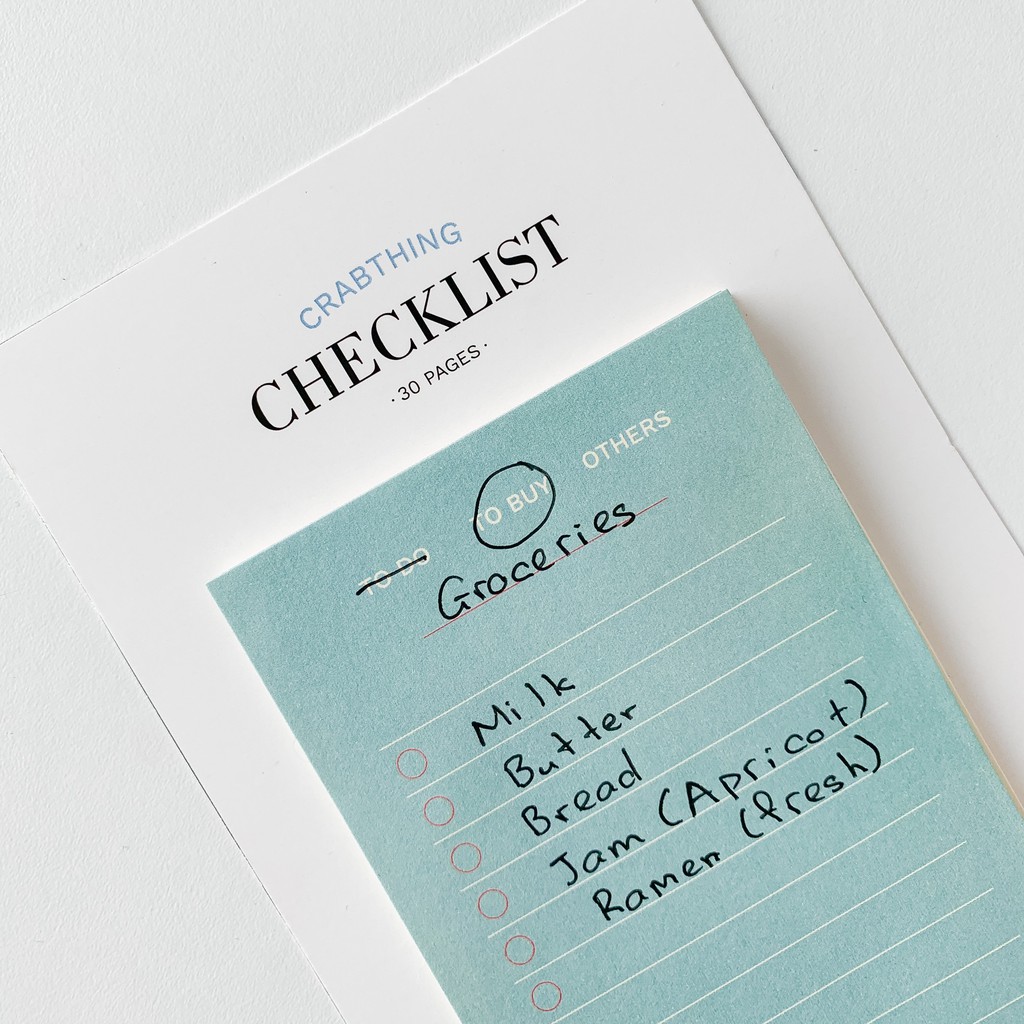 CRABTHING
CHECKLIST
·30 PAGES·
TO DO TO BUY OTHERS
Groceries
Milk
Butter
Bread
Jam (Apricot)
Ramen (fresh)